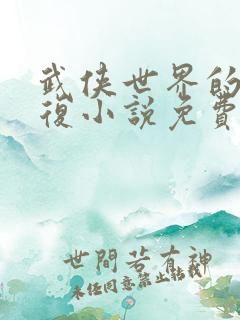 武侠世界的
復小説免費
世間若有神
未经同意禁止转载